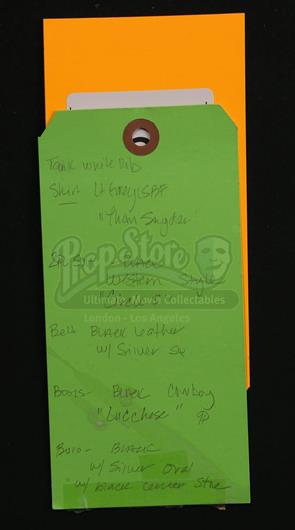 Tank white Ribs
Shirt Lt Grey SBF
"Than Snyder"
Western Style
Belt Black leather
w/ Silver Sq
Boots Black Cowboy
"Lucchese"
Bolo - Black
w/ Silver Oval
w/ Black center Stne
PropStore
Ultimate Movie Collectables
London - Los Angeles